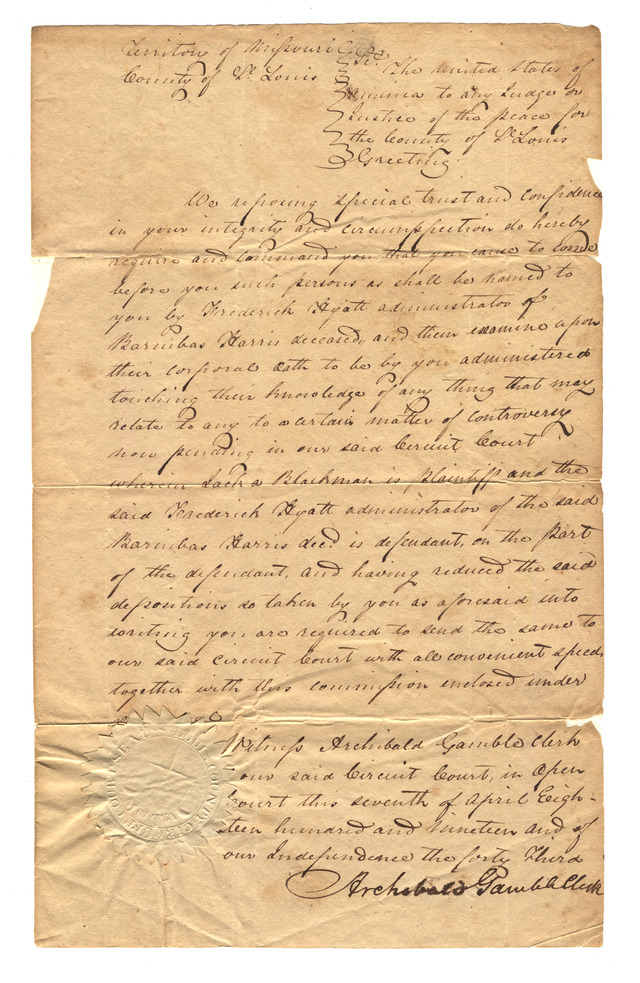 Territory of Missouri
County of St. Louis
Sc.
The United States of
America to any Judge or
Justice of the peace for
the County of St Louis
Greeting.
We reposing special trust and confidence
in your integrity and circumspection do hereby
require and command you that you cause to come
before you such persons as shall be named to
you by Frederick Hyatt administrator of
Barnibas Harris deceased, and them examine upon
their corporal oath to be by you administered
touching their knowledge of any thing that may
relate to any to a certain matter of controversy
now pending in our said Circuit Court
wherein Jack a Blackman is plaintiff and the
said Frederick Hyatt administrator of the said
Barnibas Harris decd is defendant, on the part
of the defendant, and having reduced the said
depositions so taken by you as aforesaid into
writing you are required to send the same to
our said Circuit Court with all convenient speed,
together with this commission enclosed under
Witness Archibald Gamble Clerk
our said Circuit Court, in open
Court this seventh of April Eigh-
teen hundred and Nineteen and of
our Independence the forty Third
Archibald Gamble Clerk